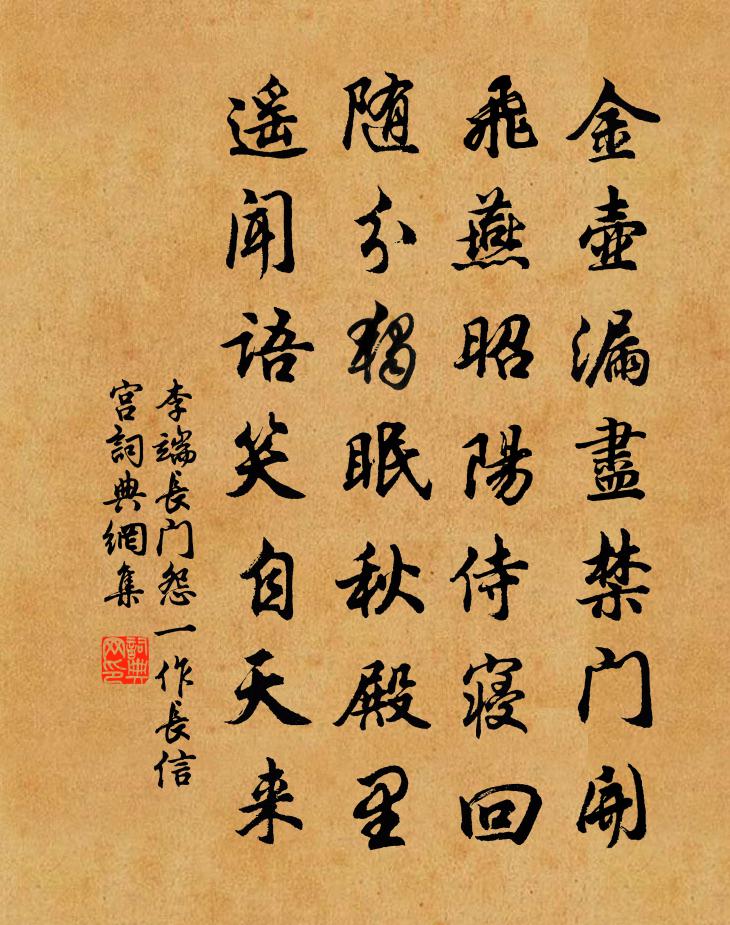 金壺漏盡禁门開
飛燕昭陽侍寢回
随分獨眠秋殿里
遥聞語笑自天来
李端長门怨一作長信
宫詞典網集
詞典网印